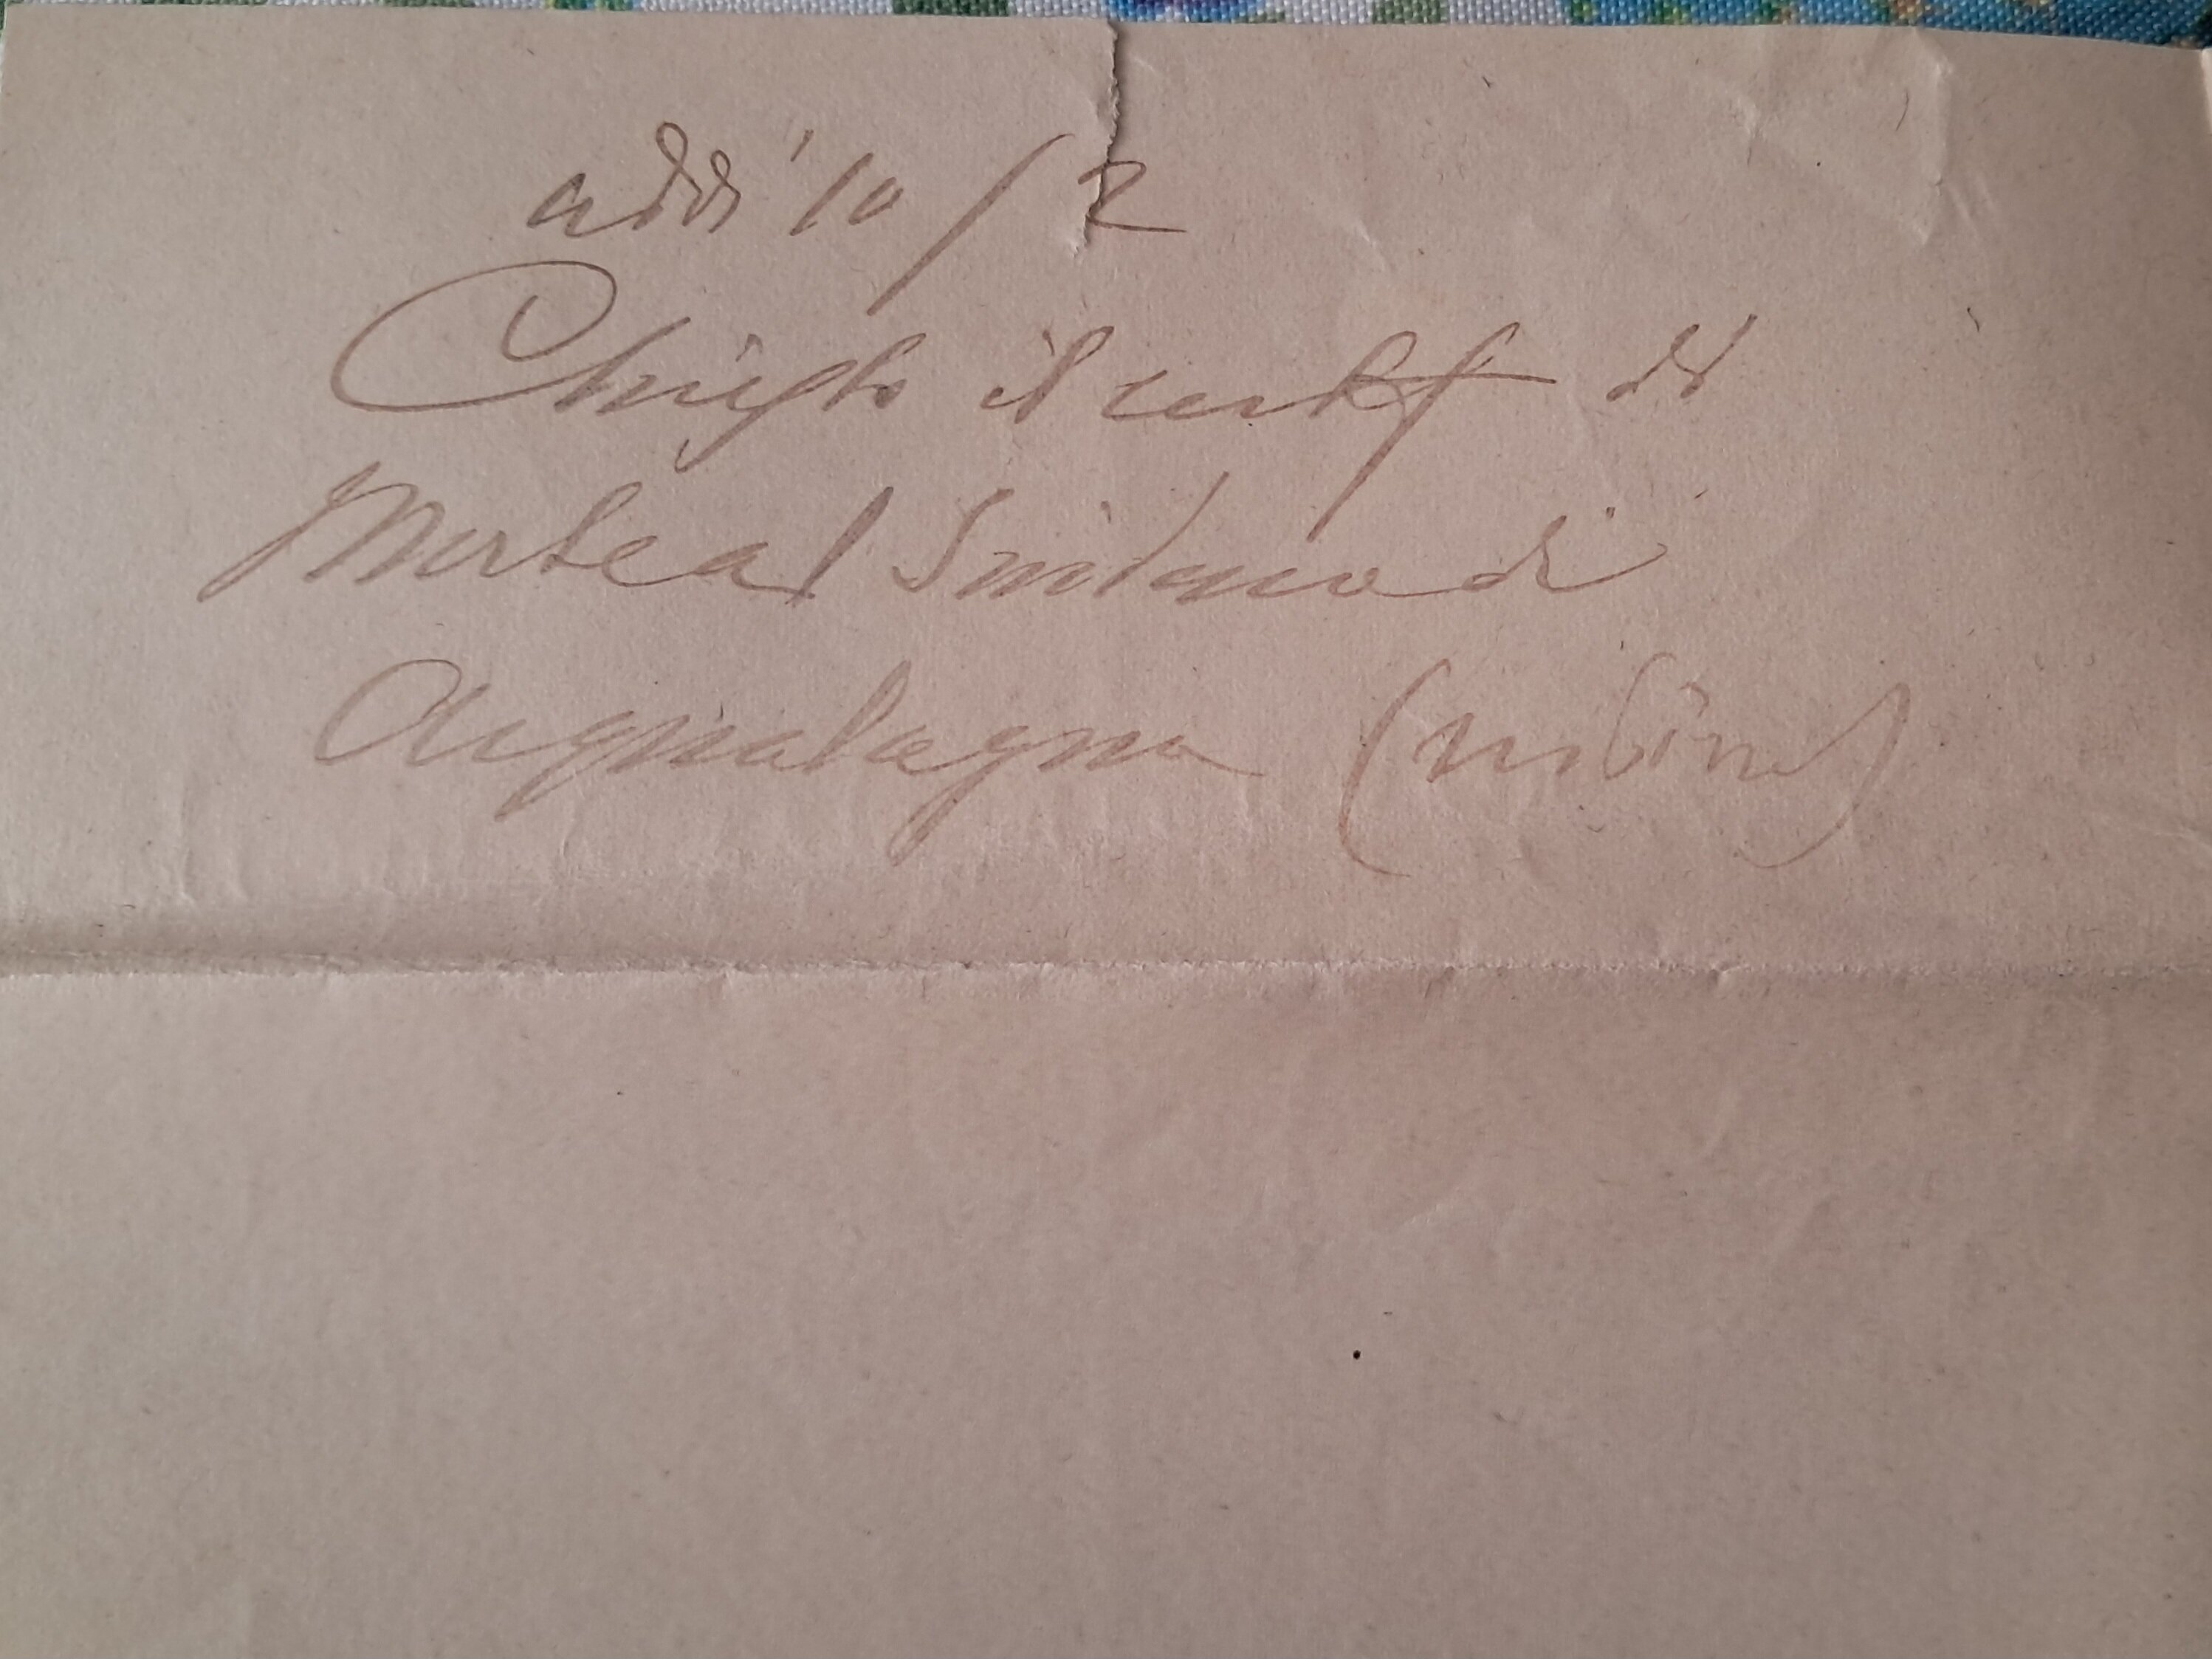 addi' 10/2
Chiesto il certif di
Morte al Sindaco di
Acqualagna (Urbino)